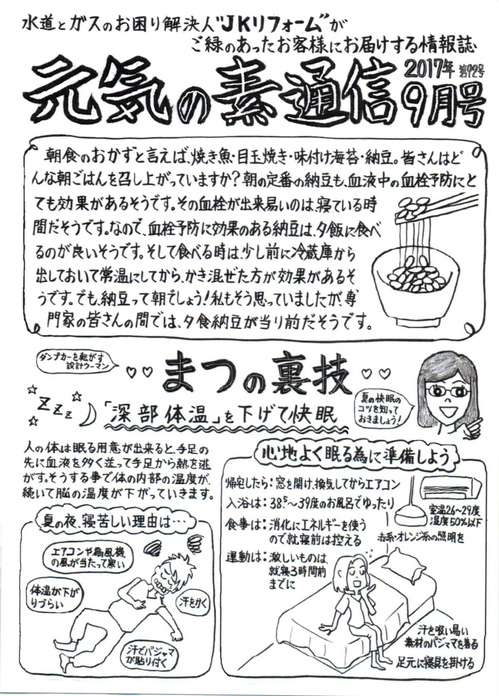 水道とガスのお困り解決人"JKリフォーム"が
ご縁のあったお客様にお届けする情報誌
元気の素通信 2017年 9月号
朝食のおかずと言えば、焼き魚・目玉焼き・味付け海苔・納豆。皆さんはど
んな朝ごはんを召し上がっていますか?朝の定番の納豆も、血液中の血栓予防にと
ても効果があるそうです。その血栓が出来易いのは、寝ている時
間だそうです。なので、血栓予防に効果のある納豆は、夕飯に食べ
るのが良いそうです。そして食べる時は少し前に冷蔵庫から
出しておいて常温にしてから、かき混ぜた方が効果があるそ
うです。でも納豆って朝でしょう!私もそう思っていましたが、専
門家の皆さんの間では、夕食納豆が当り前だそうです。
ダンプカーを転がす
設計ウーマン
♡♡ まつの裏技 ♡♡
Zzz 「深部体温」を下げて快眠
夏の快眠の
コツを知って
おきましょう!
人の体は眠る用意が出来ると、手足の
先に血液を多く送って手足から熱を逃
がす。そうする事で体の内部の温度が、
続いて脳の温度が下がっていきます。
夏の夜、寝苦しい理由は…
エアコンや扇風機
の風が当たって寒い
体温が下が
りづらい
汗をかく
汗でパジャマ
が貼り付く
心地よく眠る為に準備しよう
帰宅したら:窓を開け、換気してからエアコン
入浴は:38.5~39度のお風呂でゆったり
食事は:消化にエネルギーを使う
ので就寝前は控える
運動は:激しいものは
就寝3時間前
までに
室温26~29度
湿度50%以下
赤系・オレンジ系の照明を
汗を吸い易い
素材のパジャマを着る
足元に寝具を掛ける